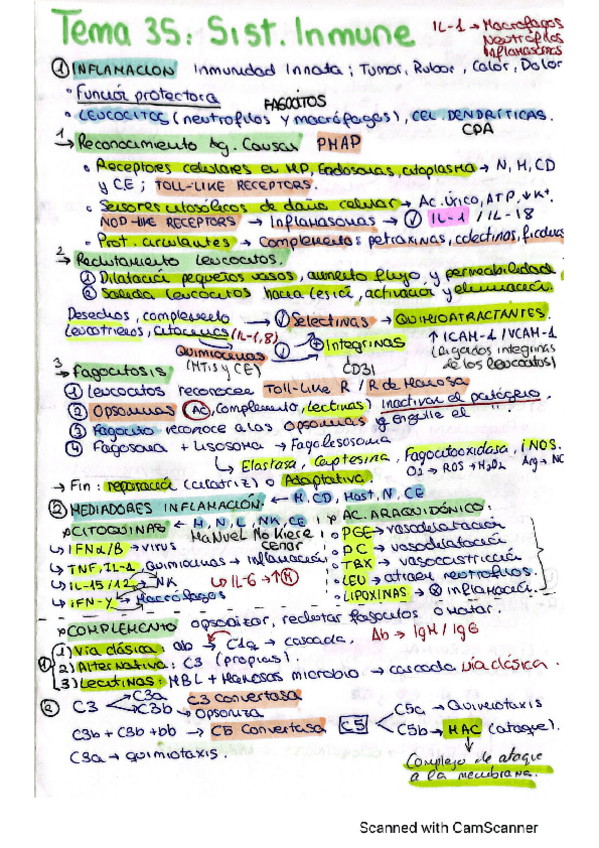 Tema 35: Sist. Inmune
IL-1 → Macrófagos
Neutrófilos
Inflamasomas
① INFLAMACIÓN Inmunidad Innata; Tumor, Rubor, Calor, Dolor
• Función protectora
FAGOCITOS
• LEUCOCITOS (neutrófilos y macrófagos), CEL. DENDRÍTICAS.
CPA
1 → Reconocimiento Ag. Causal PMAP
• Receptores celulares en MP, Endosomas, citoplasma → N, M, CD
y CE; TOLL-LIKE RECEPTORS.
• Sensores citosólicos de daño celular → Ac. Úrico, ATP, ↓K+.
NOD-LIKE RECEPTORS → Inflamasomas → IL-1 / IL-18
• Prot. circulantes → Complemento: petraxinas, colectinas, ficolinas
2 → Reclutamiento Leucocitos.
① Dilatación pequeños vasos, aumento flujo y permeabilidad
② Salida leucocitos hacia lesión, activación y eliminación.
Desechos, complemento
leucotrienos, citocinas (IL-1,8)
→ Selectinas → QUIMIOATRACTANTES.
Quimiocinas
(MTis y CE)
⊕ Integrinas
CD31
↑ ICAM-1 / VCAM-1
(Ligandos integrinas
de los leucocitos)
3 → Fagocitosis
① Leucocitos reconocen Toll-Like R / R de Manosa.
② Opsoninas (Ac, Complemento, lectinas) Inactivar el patógeno.
③ Fagocito reconoce a las opsoninas y Engulle el "
④ Fagosoma + Lisosoma → Fagolisosoma
↳ Elastasa, Captesina, Fagocitooxidasa, iNOS.
O2 → ROS → H2O2 Arg → NO
→ Fin: reparación (cicatriz) o Adaptativa.
② MEDIADORES INFLAMACIÓN. ← M, CD, Mast, N, CE
CITOQUINAS ← M, N, L, NK, CE
MaNueL No Kiere
cenar
↳ IFNα/β → virus
↳ TNF, IL-1, Quimiocinas → Inflamación
↳ IL-15/12 → NK
↳ IL-6 → ↑ (H)
↳ IFN-γ → Macrófagos
AC. ARAQUIDÓNICO:
• PGE → vasodilatación
• PC → vasodilatación
• TBX → vasoconstricción
• LEU → atraen neutrófilos
• LIPOXINAS → ⊗ inflamación.
COMPLEMENTO opsonizar, reclutar fagocitos o matar.
1) Vía clásica: ab → C1q → cascada. Ab → IgM / IgG
2) Alternativa: C3 (propias).
3) Lectinas: MBL + Manosas microbio → cascada vía clásica.
② C3 → C3a
→ C3b → Opsoniza
C3 convertasa
C3b + C3b + bb → C5 Convertasa C5
C5a → Quimiotaxis
C5b → MAC (ataque).
C3a → quimiotaxis.
Complejo de ataque
a la membrana.
Scanned with CamScanner